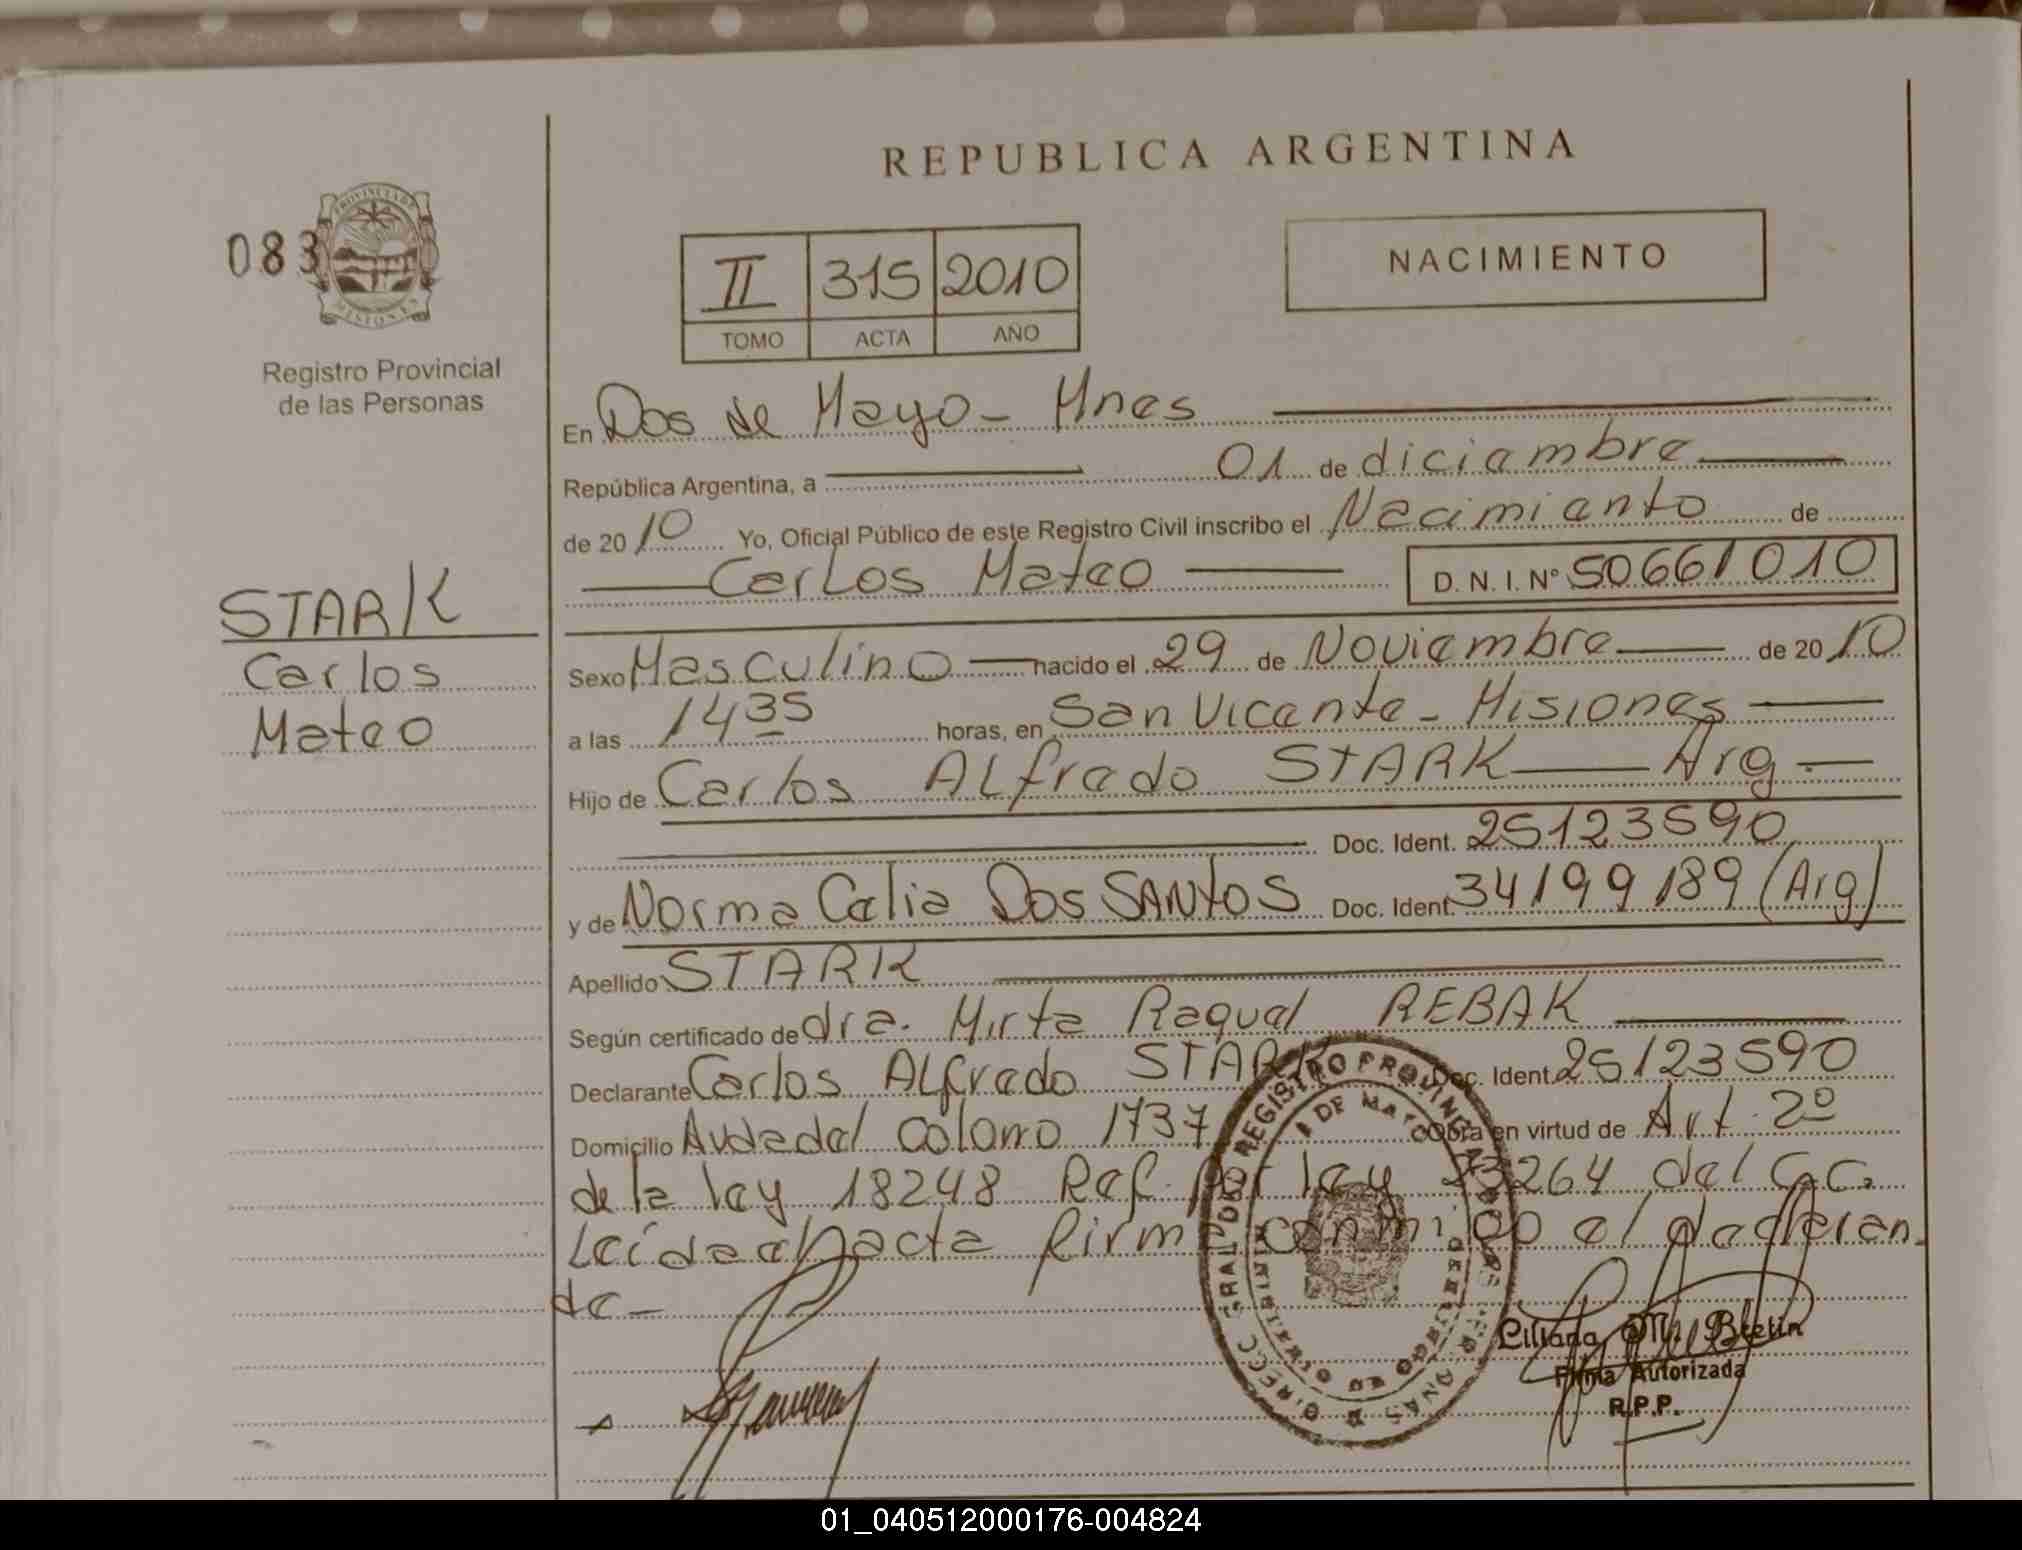 REPUBLICA ARGENTINA
083
PROVINCIA DE
MISIONES
Registro Provincial
de las Personas
II 315 2010
TOMO ACTA AÑO
NACIMIENTO
En Dos de Mayo - Mnes
República Argentina, a 01 de diciembre
de 2010 Yo, Oficial Público de este Registro Civil inscribo el Nacimiento de
Carlos Mateo D. N. I. Nº 50661010
STARK
Carlos
Mateo
Sexo Masculino nacido el 29 de Noviembre de 2010
a las 1435 horas, en San Vicente - Misiones
Hijo de Carlos Alfredo STARK Arg.
Doc. Ident. 25123590
y de Norma Celia Dos SANtoS Doc. Ident. 34199189 (Arg)
Apellido STARK
Según certificado de dra. Mirta Raquel REBAK
Declarante Carlos Alfredo STARK Doc. Ident. 25123590
Domicilio Avda del Colono 1737 Obra en virtud de Art. 2º
de la ley 18248 Ref. por ley 23264 del C.C.
Leída el acta firma conmigo el declaran
te -
REGISTRO PROVINCIAL
Liliana M. Bretin
Firma Autorizada
R.P.P.
01_040512000176-004824